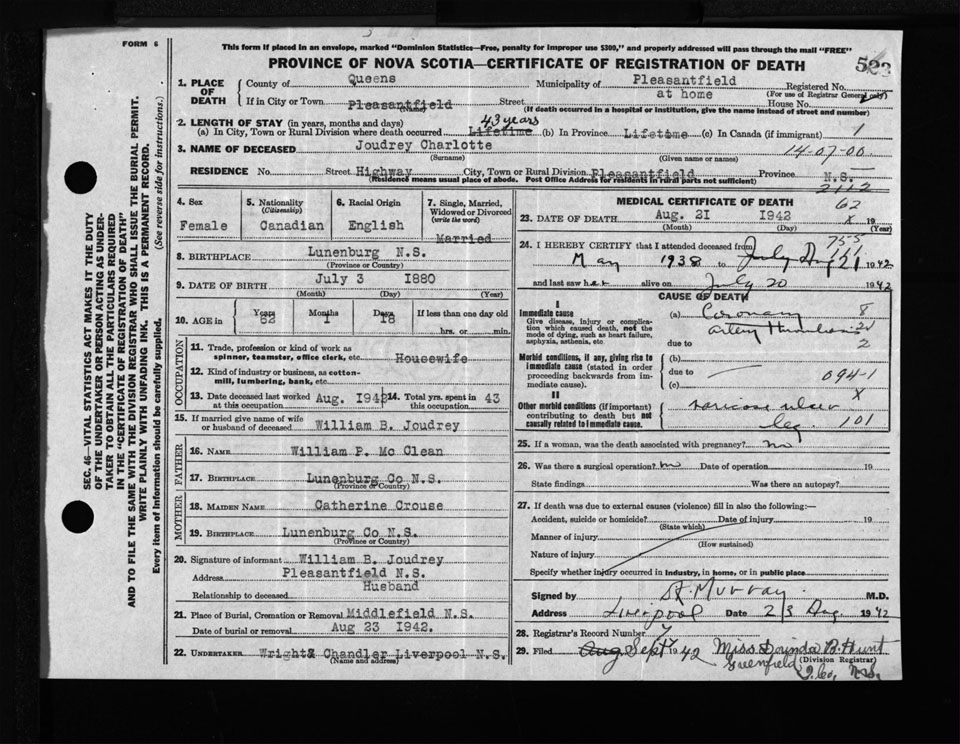 FORM 6
This form if placed in an envelope, marked "Dominion Statistics—Free, penalty for improper use $300," and properly addressed will pass through the mail "FREE"
PROVINCE OF NOVA SCOTIA—CERTIFICATE OF REGISTRATION OF DEATH
523
1. PLACE OF DEATH
County of Queens Municipality of Pleasantfield Registered No.
at home (For use of Registrar General only)
If in City or Town Pleasantfield Street House No.
(Name) (If death occurred in a hospital or institution, give the name instead of street and number)
2. LENGTH OF STAY (in years, months and days) 43 years
(a) In City, Town or Rural Division where death occurred Lifetime (b) In Province Lifetime (c) In Canada (if immigrant) 1
3. NAME OF DECEASED Joudrey Charlotte 14-07-00
(Surname) (Given name or names)
RESIDENCE No. Street Highway City, Town or Rural Division Pleasantfield Province N.S.
(Residence means usual place of abode. Post Office Address for residents in rural parts not sufficient) 2112
4. Sex
Female
5. Nationality
(Citizenship)
Canadian
6. Racial Origin
English
7. Single, Married, Widowed or Divorced
(write the word)
Married
8. BIRTHPLACE Lunenburg N.S.
(Province or Country)
9. DATE OF BIRTH July 3 1880
(Month) (Day) (Year)
10. AGE in Years Months Days If less than one day old
62 1 18 hrs. or min.
OCCUPATION
11. Trade, profession or kind of work as spinner, teamster, office clerk, etc. Housewife
12. Kind of industry or business, as cotton-mill, lumbering, bank, etc.
13. Date deceased last worked at this occupation Aug. 1942
14. Total yrs. spent in this occupation 43
15. If married give name of wife or husband of deceased William B. Joudrey
FATHER
16. NAME William P. Mc Clean
17. BIRTHPLACE Lunenburg Co N.S.
(Province or Country)
MOTHER
18. MAIDEN NAME Catherine Crouse
19. BIRTHPLACE Lunenburg Co N.S.
(Province or Country)
20. Signature of informant William B. Joudrey
Address Pleasantfield N.S.
Relationship to deceased Husband
21. Place of Burial, Cremation or Removal Middlefield N.S.
Date of burial or removal Aug 23 1942.
22. UNDERTAKER Wright& Chandler Liverpool N.S.
(Name and address)
MEDICAL CERTIFICATE OF DEATH 62
23. DATE OF DEATH Aug. 21 1942 X 19
(Month) (Day) (Year)
24. I HEREBY CERTIFY that I attended deceased from
May 1938 to July Aug 21 1942
and last saw her alive on July 20 1942
CAUSE OF DEATH
I
Immediate cause
Give disease, injury or complication which caused death, not the mode of dying, such as heart failure, asphyxia, asthenia, etc.
(a) Coronary 8
artery
due to 2
Morbid conditions, if any, giving rise to immediate cause (stated in order proceeding backwards from immediate cause).
(b)
due to 094-1
(c)
II
Other morbid conditions (if important) contributing to death but not causally related to immediate cause.
X
varicose ulcer
leg. 101
25. If a woman, was the death associated with pregnancy? no
26. Was there a surgical operation? no Date of operation 19
State findings Was there an autopsy?
27. If death was due to external causes (violence) fill in also the following:—
Accident, suicide or homicide? Date of injury 19
(State which)
Manner of injury
(How sustained)
Nature of injury
Specify whether injury occurred in industry, in home, or in public place
Signed by Murray M.D.
Address Liverpool Date 23 Aug. 1942
28. Registrar's Record Number 7
29. Filed Aug Sept 1942 Miss Dorinda B. Hunt
Greenfield (Division Registrar)
Q. Co, N.S.
SEC. 46—VITAL STATISTICS ACT MAKES IT THE DUTY
OF THE UNDERTAKER OR PERSON ACTING AS UNDER-
TAKER TO OBTAIN ALL THE PARTICULARS REQUIRED
IN THE "CERTIFICATE OF REGISTRATION OF DEATH"
AND TO FILE THE SAME WITH THE DIVISION REGISTRAR WHO SHALL ISSUE THE BURIAL PERMIT.
WRITE PLAINLY WITH UNFADING INK. THIS IS A PERMANENT RECORD.
Every item of information should be carefully supplied. (See reverse side for instructions.)